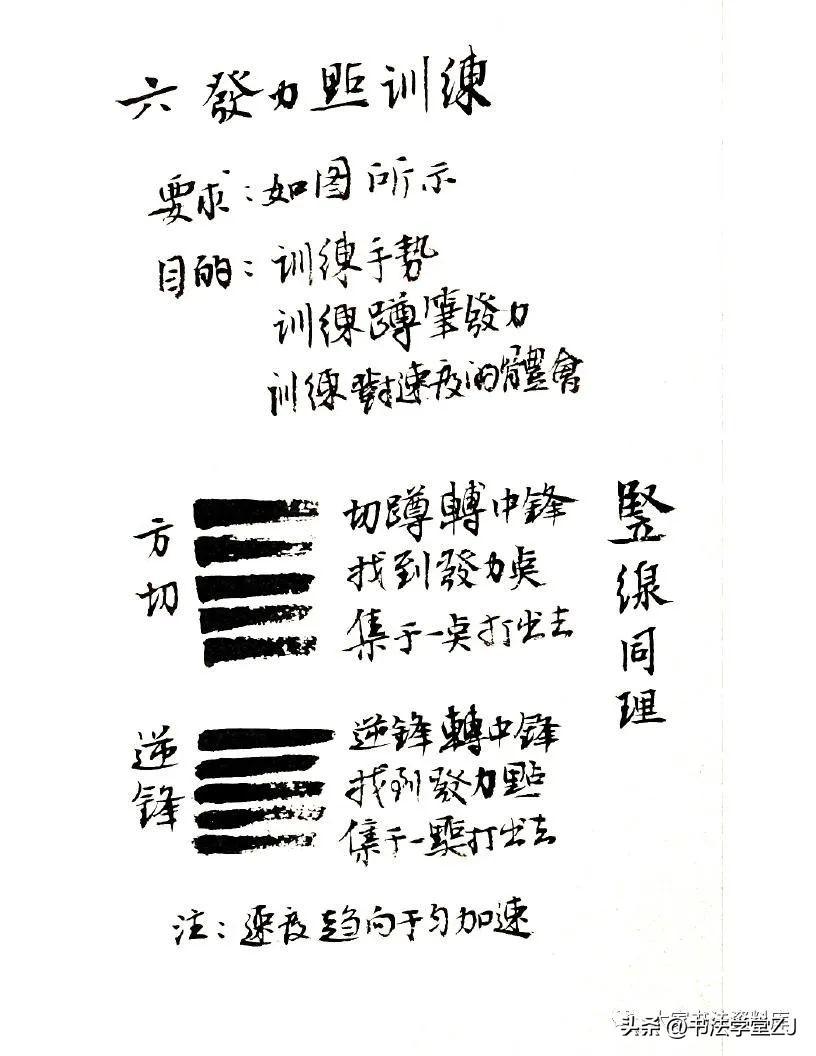 六發力點训練
要求：如图所示
目的：训練手勢
训練蹲筆發力
训練對速度的體會
方切
切蹲轉中鋒
找到發力奌
集于一奌打出去
逆鋒
逆鋒轉中鋒
找到發力點
集于一點打出去
竪線同理
注：速度趋向于匀加速
大家书法資料库
头条@书法学堂ZJ